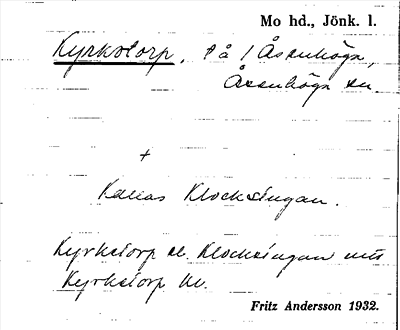 Mo hd., Jönk. l.
Kyrkotorp. tå 1 Åsenhöga,
Åsenhöga sn.
+
Kallas Klockstugan.
Kyrkotorp el. Klockstugan intill
Kyrkotorp
Fritz Andersson 1932.